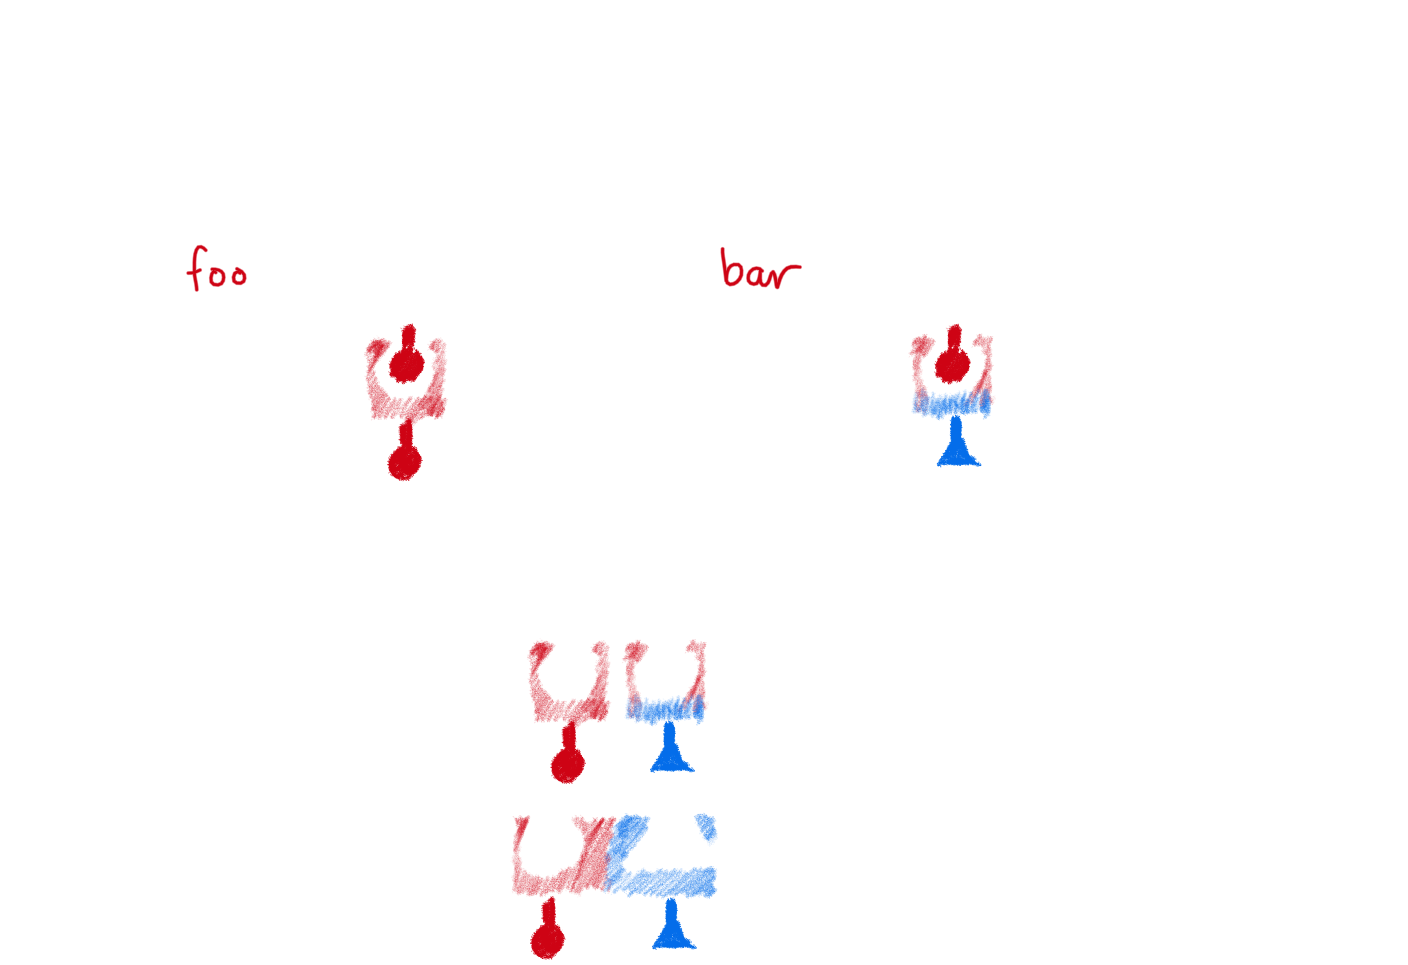 foo
bar